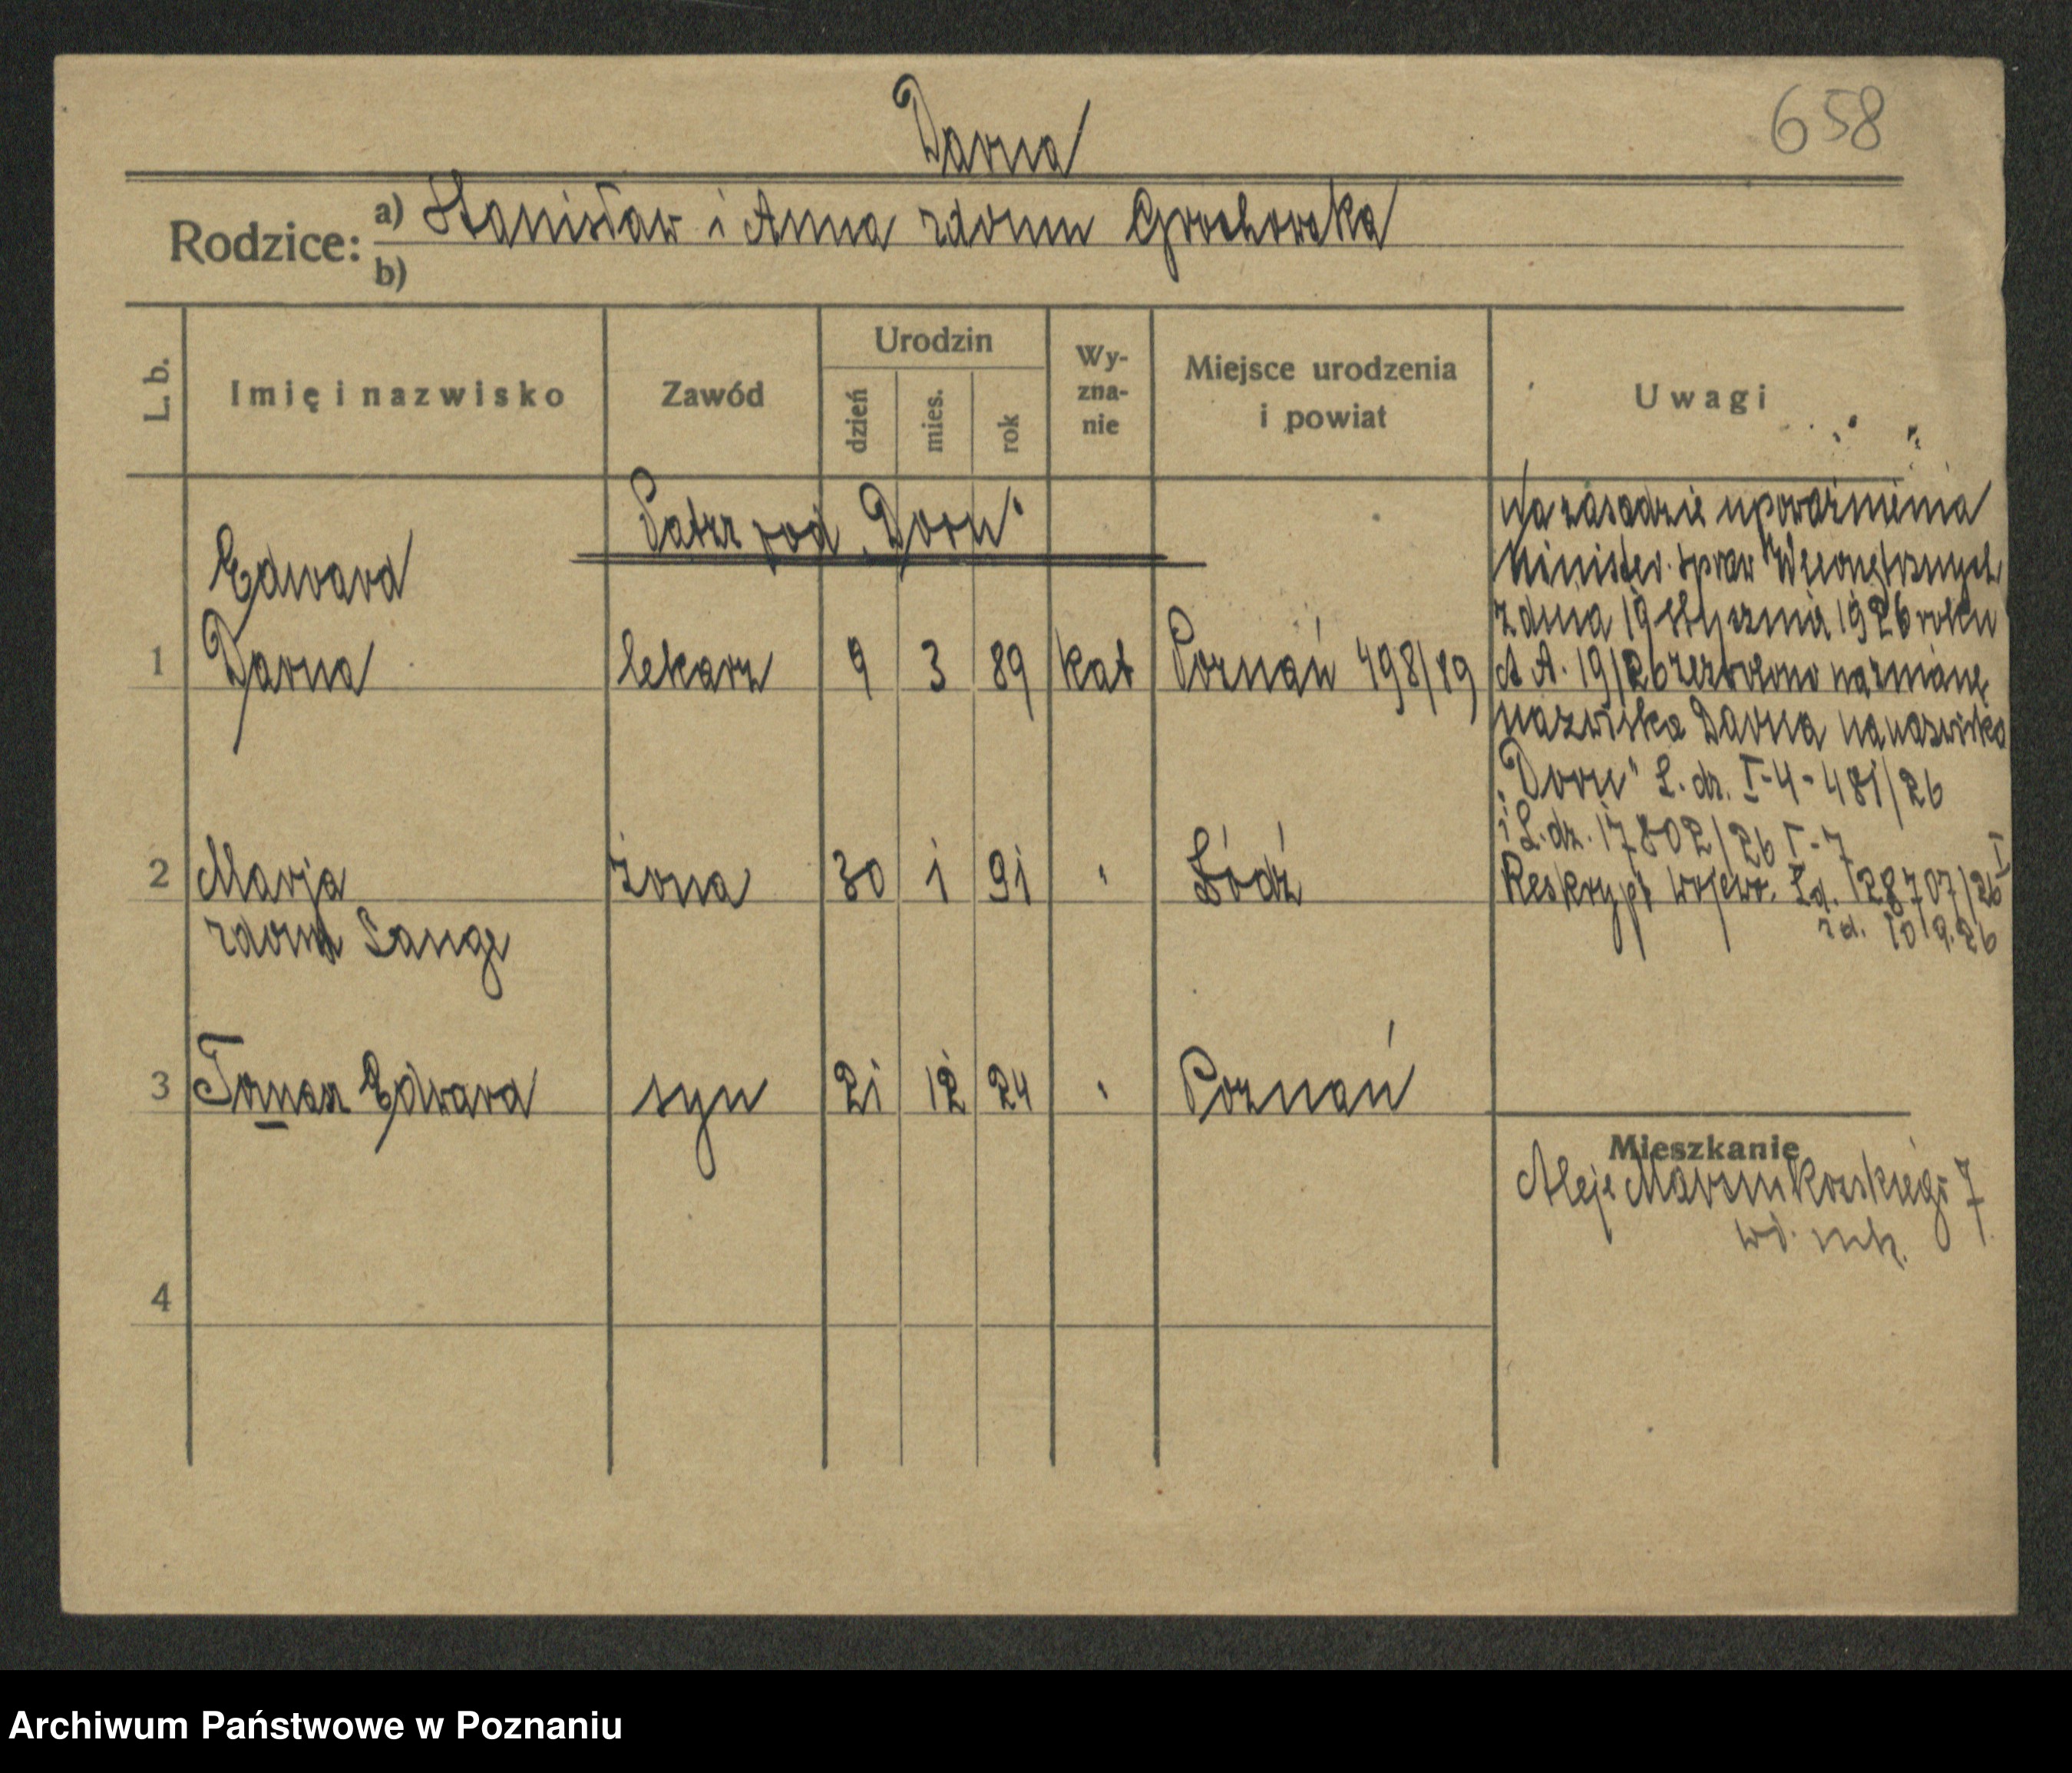 658
Darna
Rodzice: a) Stanisław i Anna zdomu Grochowska
b)
L. b. Imię i nazwisko Zawód Urodzin dzień mies. rok Wy-zna-nie Miejsce urodzenia i powiat Uwagi
Patrz pod „Dorn"
1 Edward
Darna lekarz 9 3 89 kat Poznań 498/89
2 Marja żona 30 1 91 " Łódź
zdomu Lange
3 Tomasz Edward syn 21 12 24 " Poznań
4
Na zasadzie upoważnienia
Minister. spraw Wewnętrznych
z dnia 19 stycznia 1926 roku
A A. 19/26 zezwolono na zmianę
nazwiska Darna na nazwisko
„Dorn" L. dz. I-4-481/26
i L. dz. 17802/26 I-7
Reskrypt wojew. Ld. 128707/26 I
z d. 10/9.26
Mieszkanie
Aleje Marcinkowskiego 7
Archiwum Państwowe w Poznaniu